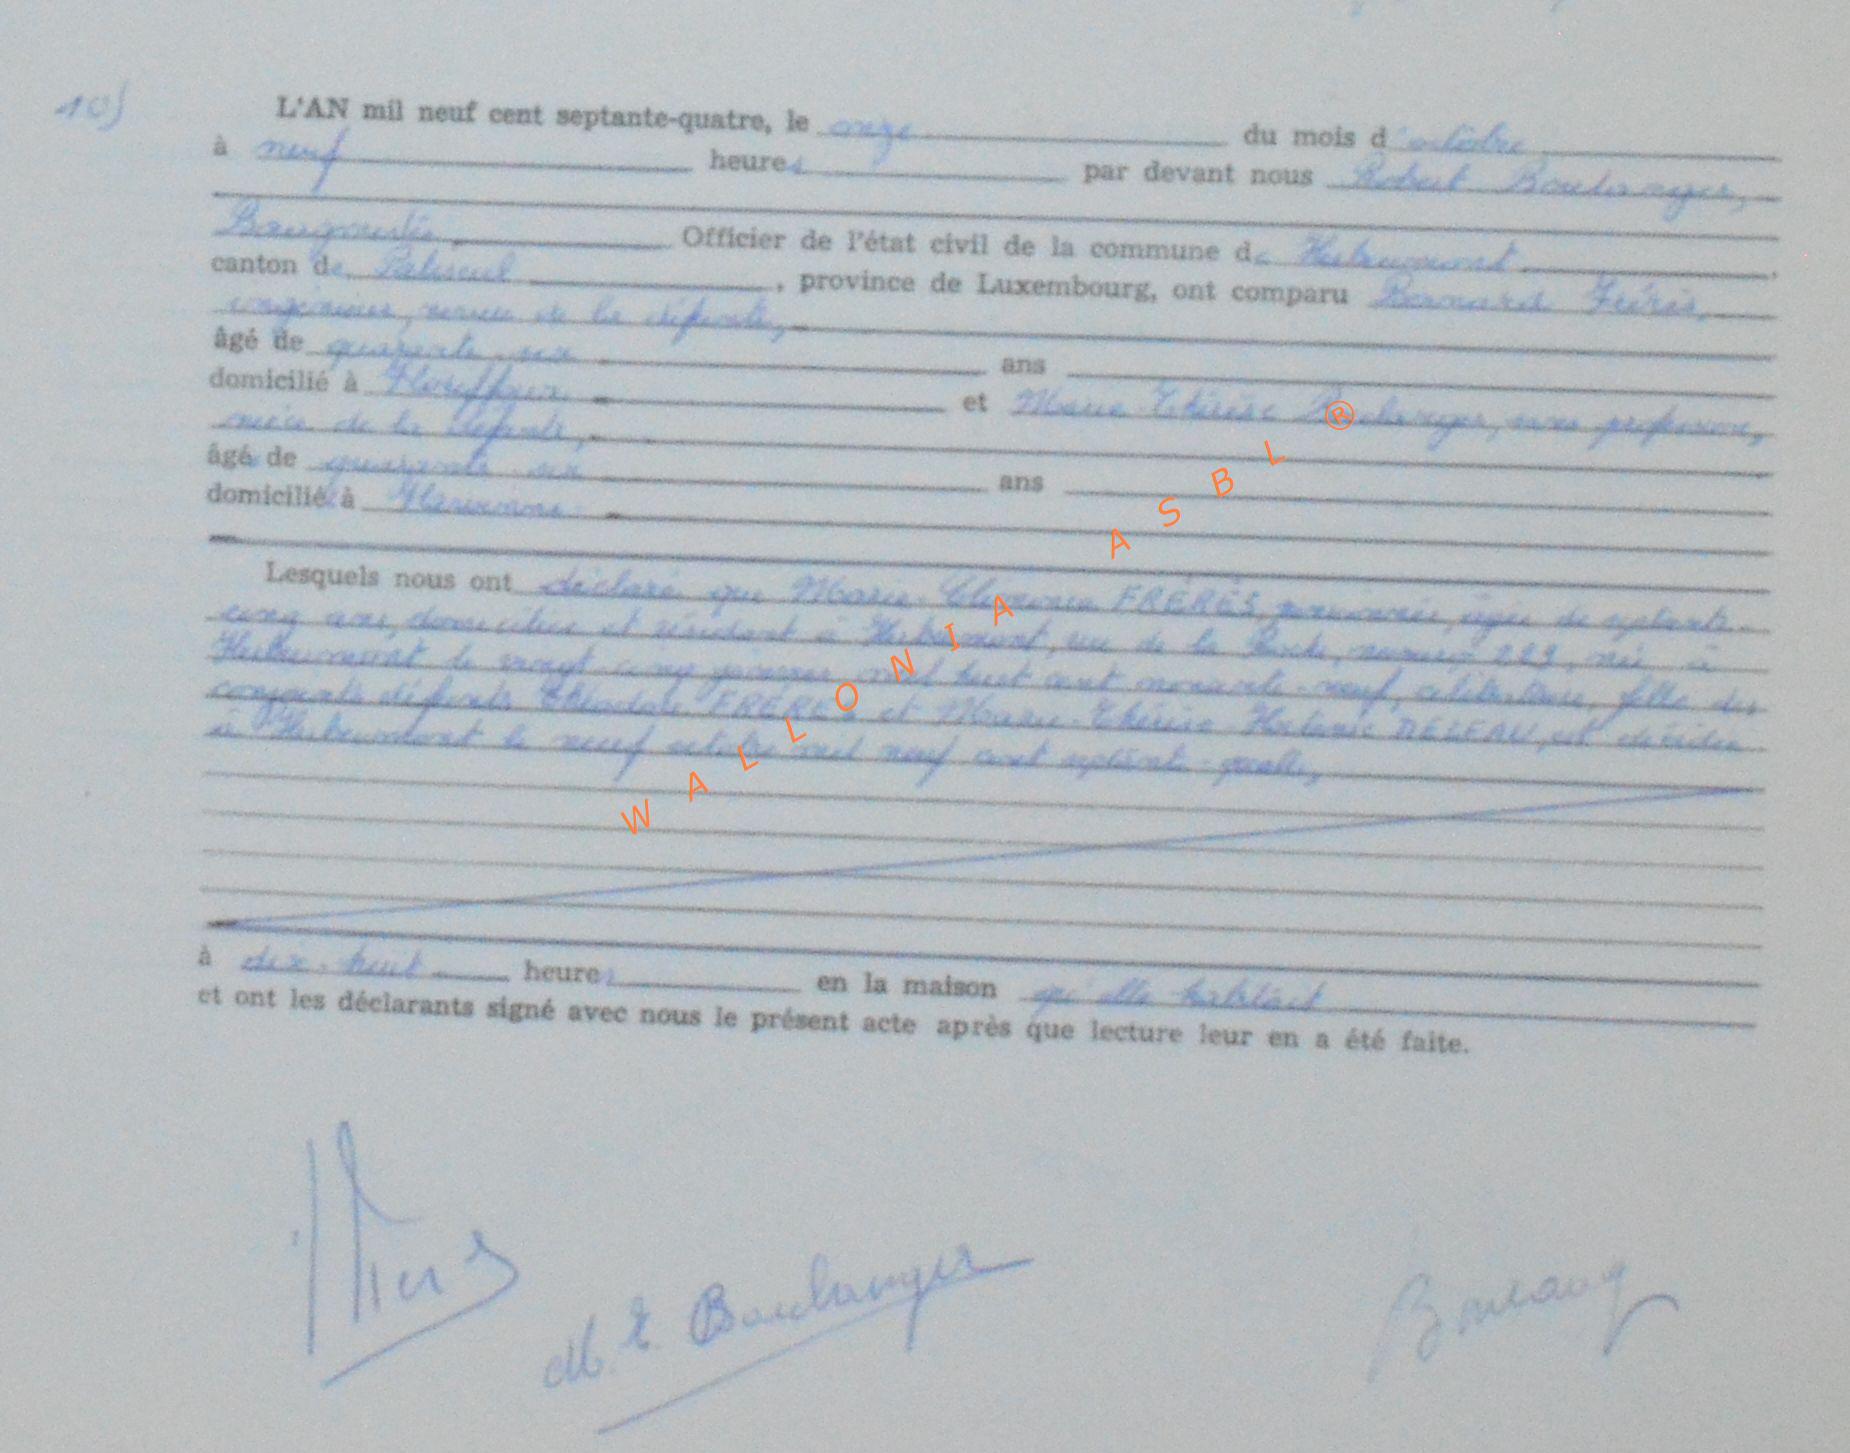 10)
L'AN mil neuf cent septante-quatre, le onze du mois d'octobre
à neuf heures par devant nous Robert Boulanger,
Bourgmestre Officier de l'état civil de la commune de Herbeumont
canton de Paliseul, province de Luxembourg, ont comparu Bernard Frérès,
ingénieur, neveu de la défunte,
âgé de quarante-six ans
domicilié à et Marie-Thérèse Boulanger, sans profession,
nièce de la défunte,
âgée de quarante-six ans
domiciliée à
Lesquels nous ont déclaré que Marie FRÉRÈS, pensionnée, âgée de septante-
cinq ans, domiciliée et résidant à Herbeumont, rue de la Roche, numéro 223, née à
Herbeumont le vingt-cinq janvier mil huit cent nonante-neuf, célibataire, fille des
conjoints défunts Théodore FRÉRÈS et Marie-Thérèse DELEAU, est décédée
à Herbeumont le neuf octobre mil neuf cent septante-quatre,
à dix-huit heures en la maison qu'elle habitait
et ont les déclarants signé avec nous le présent acte après que lecture leur en a été faite.
M. T. Boulanger
Boulang
WALLONIA ASBL ®